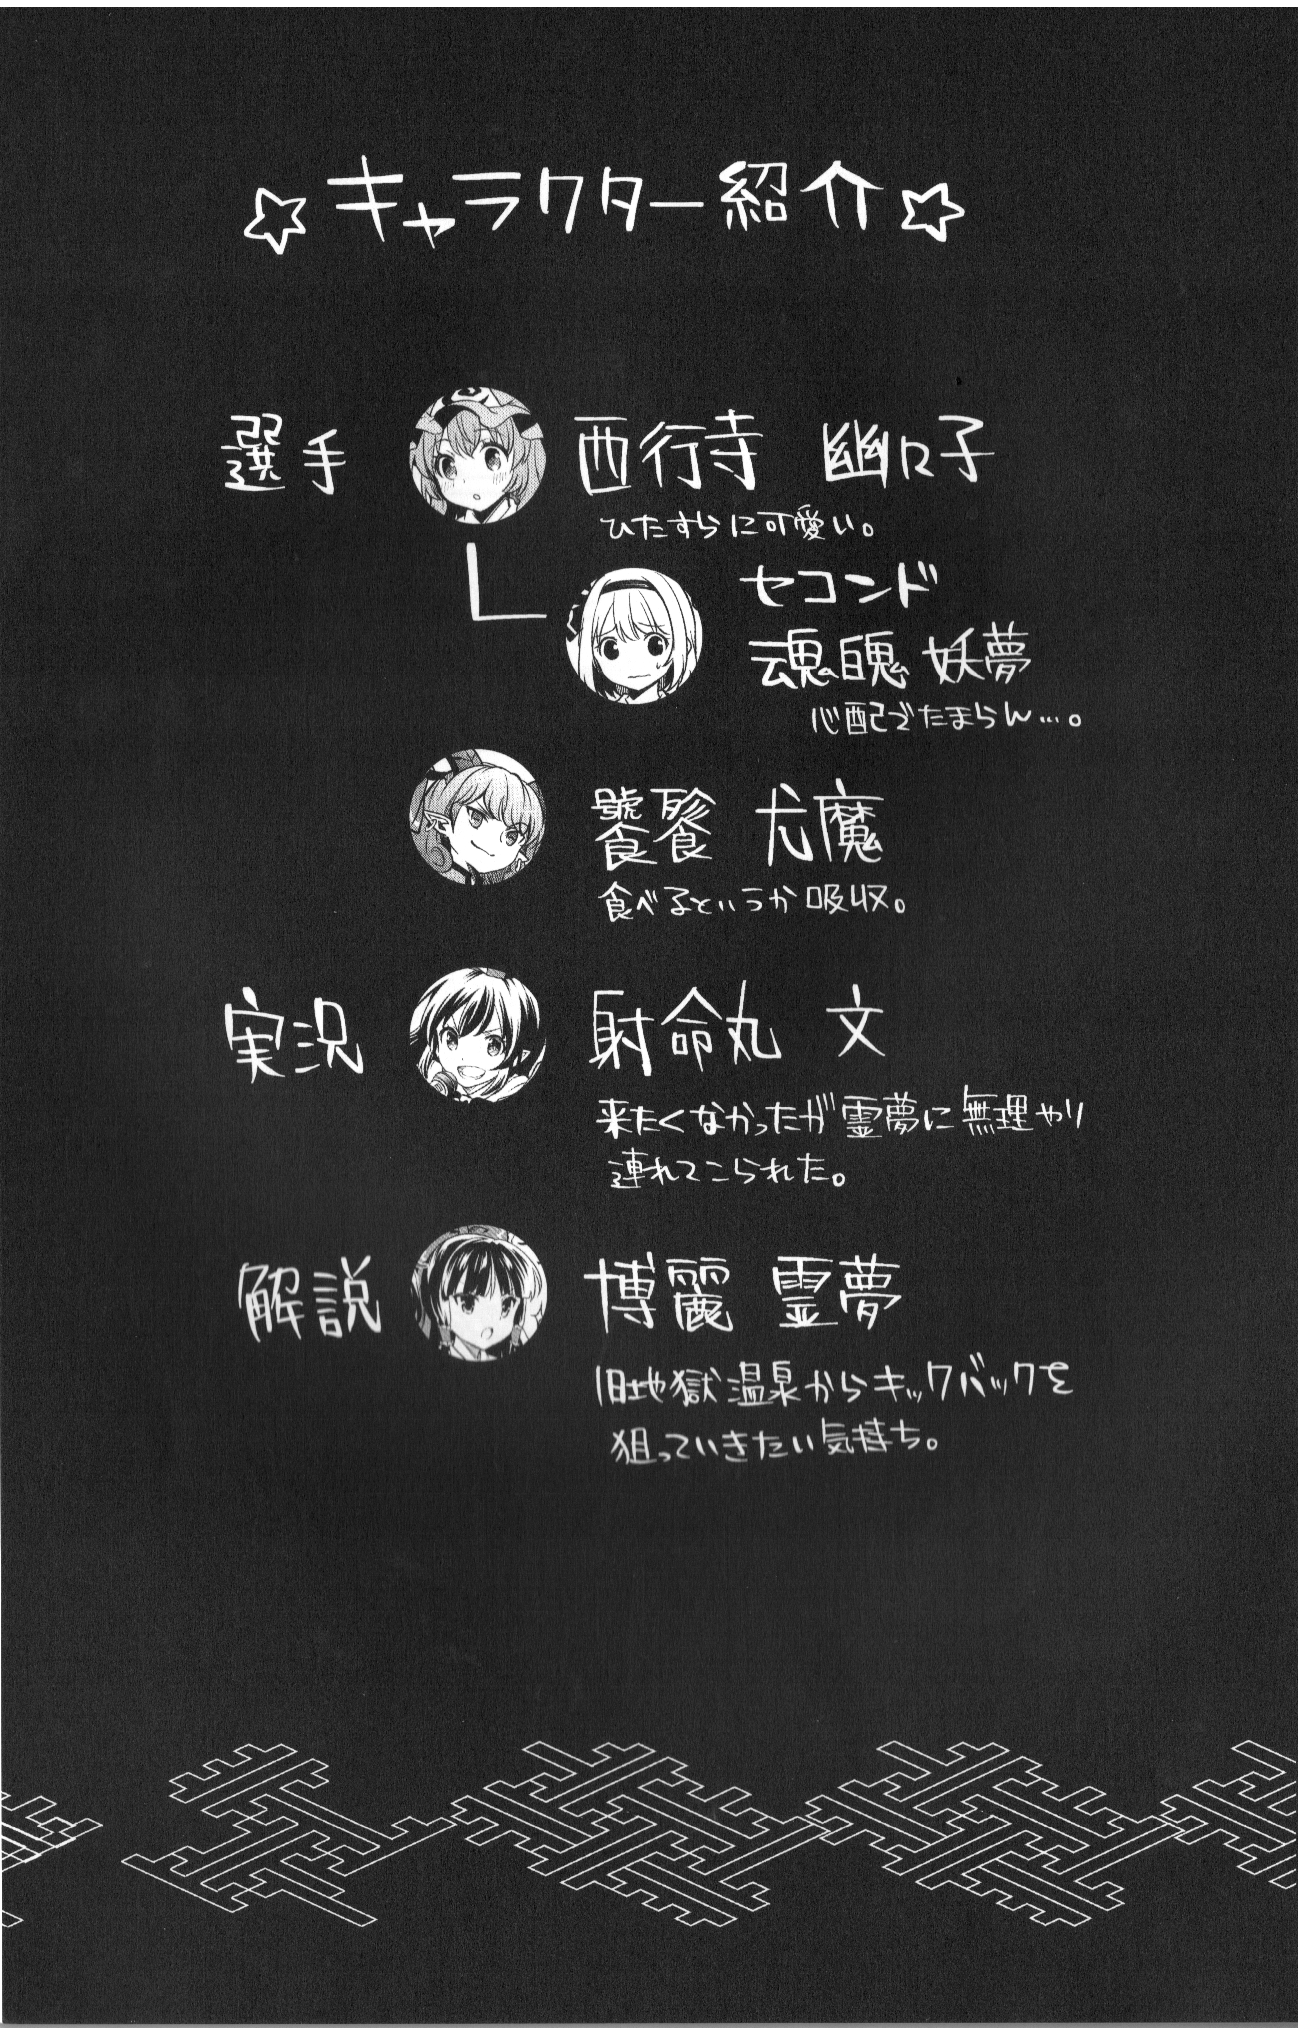 ☆キャラクター紹介☆
選手
西行寺 幽々子
ひたすらに可愛い。
セコンド
魂魄 妖夢
心配でたまらん…。
饕餮 尤魔
食べるというか吸収。
実況
射命丸 文
来たくなかったが霊夢に無理やり
連れてこられた。
解説
博麗 霊夢
旧地獄温泉からキックバックを
狙っていきたい気持ち。